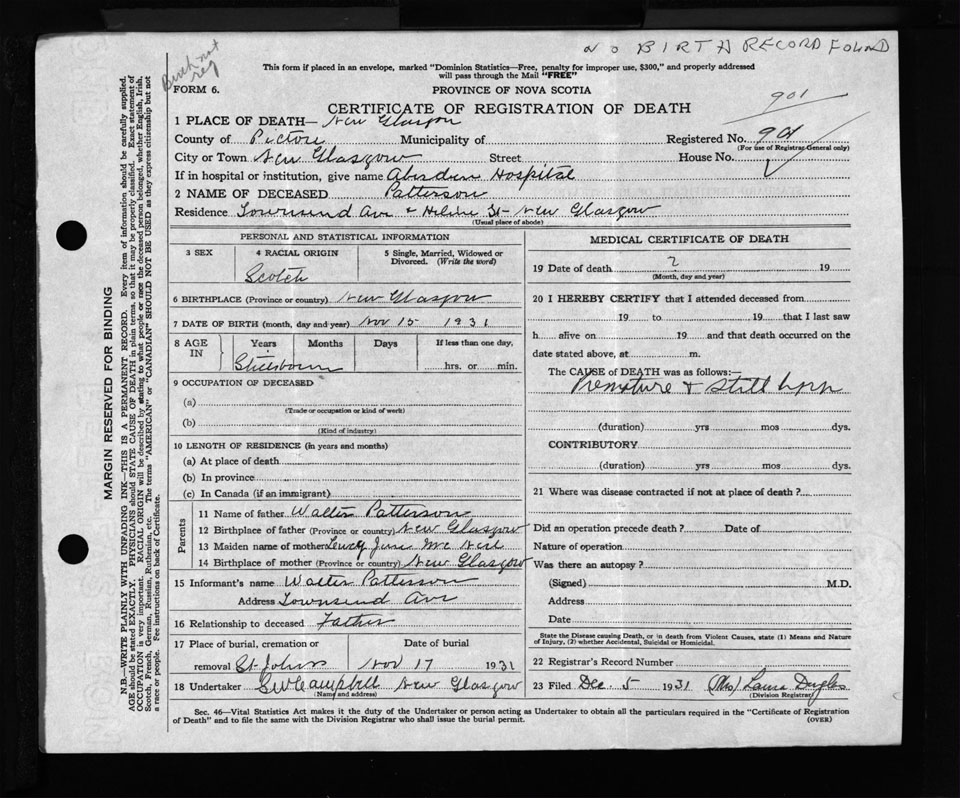 NO BIRTH RECORD FOUND
Birth not
reg
This form if placed in an envelope, marked "Dominion Statistics—Free, penalty for improper use, $300," and properly addressed
will pass through the Mail "FREE"
FORM 6.
PROVINCE OF NOVA SCOTIA
901
CERTIFICATE OF REGISTRATION OF DEATH
1 PLACE OF DEATH— New Glasgow
County of Pictou Municipality of Registered No. 901
(For use of Registrar General only)
City or Town New Glasgow Street House No.
If in hospital or institution, give name Aberdeen Hospital
2 NAME OF DECEASED Patterson
Residence Townsend Ave & St- New Glasgow
(Usual place of abode)
PERSONAL AND STATISTICAL INFORMATION
3 SEX 4 RACIAL ORIGIN 5 Single, Married, Widowed or
Divorced. (Write the word)
Scotch
6 BIRTHPLACE (Province or country) New Glasgow
7 DATE OF BIRTH (month, day and year) Nov 15 1931
8 AGE
IN
Years Months Days If less than one day,
hrs. or min.
Stillborn
9 OCCUPATION OF DECEASED
(a)
(Trade or occupation or kind of work)
(b)
(Kind of industry)
10 LENGTH OF RESIDENCE (in years and months)
(a) At place of death
(b) In province
(c) In Canada (if an immigrant)
Parents
11 Name of father Walter Patterson
12 Birthplace of father (Province or country) New Glasgow
13 Maiden name of mother Mc Neil
14 Birthplace of mother (Province or country) New Glasgow
15 Informant's name Walter Patterson
Address Townsend Ave
16 Relationship to deceased Father
17 Place of burial, cremation or Date of burial
removal St Johns Nov 17 1931
18 Undertaker Campbell New Glasgow
(Name and address)
MEDICAL CERTIFICATE OF DEATH
19 Date of death ? 19
(Month, day and year)
20 I HEREBY CERTIFY that I attended deceased from
19 to 19 that I last saw
h alive on 19 and that death occurred on the
date stated above, at m.
The CAUSE of DEATH was as follows:—
Premature & Still born
(duration) yrs mos dys.
CONTRIBUTORY
(duration) yrs mos dys.
21 Where was disease contracted if not at place of death?
Did an operation precede death? Date of
Nature of operation
Was there an autopsy?
(Signed) M.D.
Address
Date
State the Disease causing Death, or in death from Violent Causes, state (1) Means and Nature
of Injury, (2) whether Accidental, Suicidal or Homicidal.
22 Registrar's Record Number
23 Filed Dec. 5 1931 (Mrs) Laura
(Division Registrar)
Sec. 46—Vital Statistics Act makes it the duty of the Undertaker or person acting as Undertaker to obtain all the particulars required in the "Certificate of Registration
of Death" and to file the same with the Division Registrar who shall issue the burial permit.
(OVER)
MARGIN RESERVED FOR BINDING
N.B.—WRITE PLAINLY WITH UNFADING INK—THIS IS A PERMANENT RECORD. Every item of information should be carefully supplied.
AGE should be stated EXACTLY. PHYSICIANS should STATE CAUSE OF DEATH in plain terms, so that it may be properly classified. Exact statement of
OCCUPATION is very important. RACIAL ORIGIN will be described by stating to what people or race the deceased person belonged, whether English, Irish,
Scotch, French, German, Russian, Ruthenian, etc. The terms "AMERICAN" or "CANADIAN" SHOULD NOT BE USED as they express citizenship but not
a race or people. See instructions on back of Certificate.